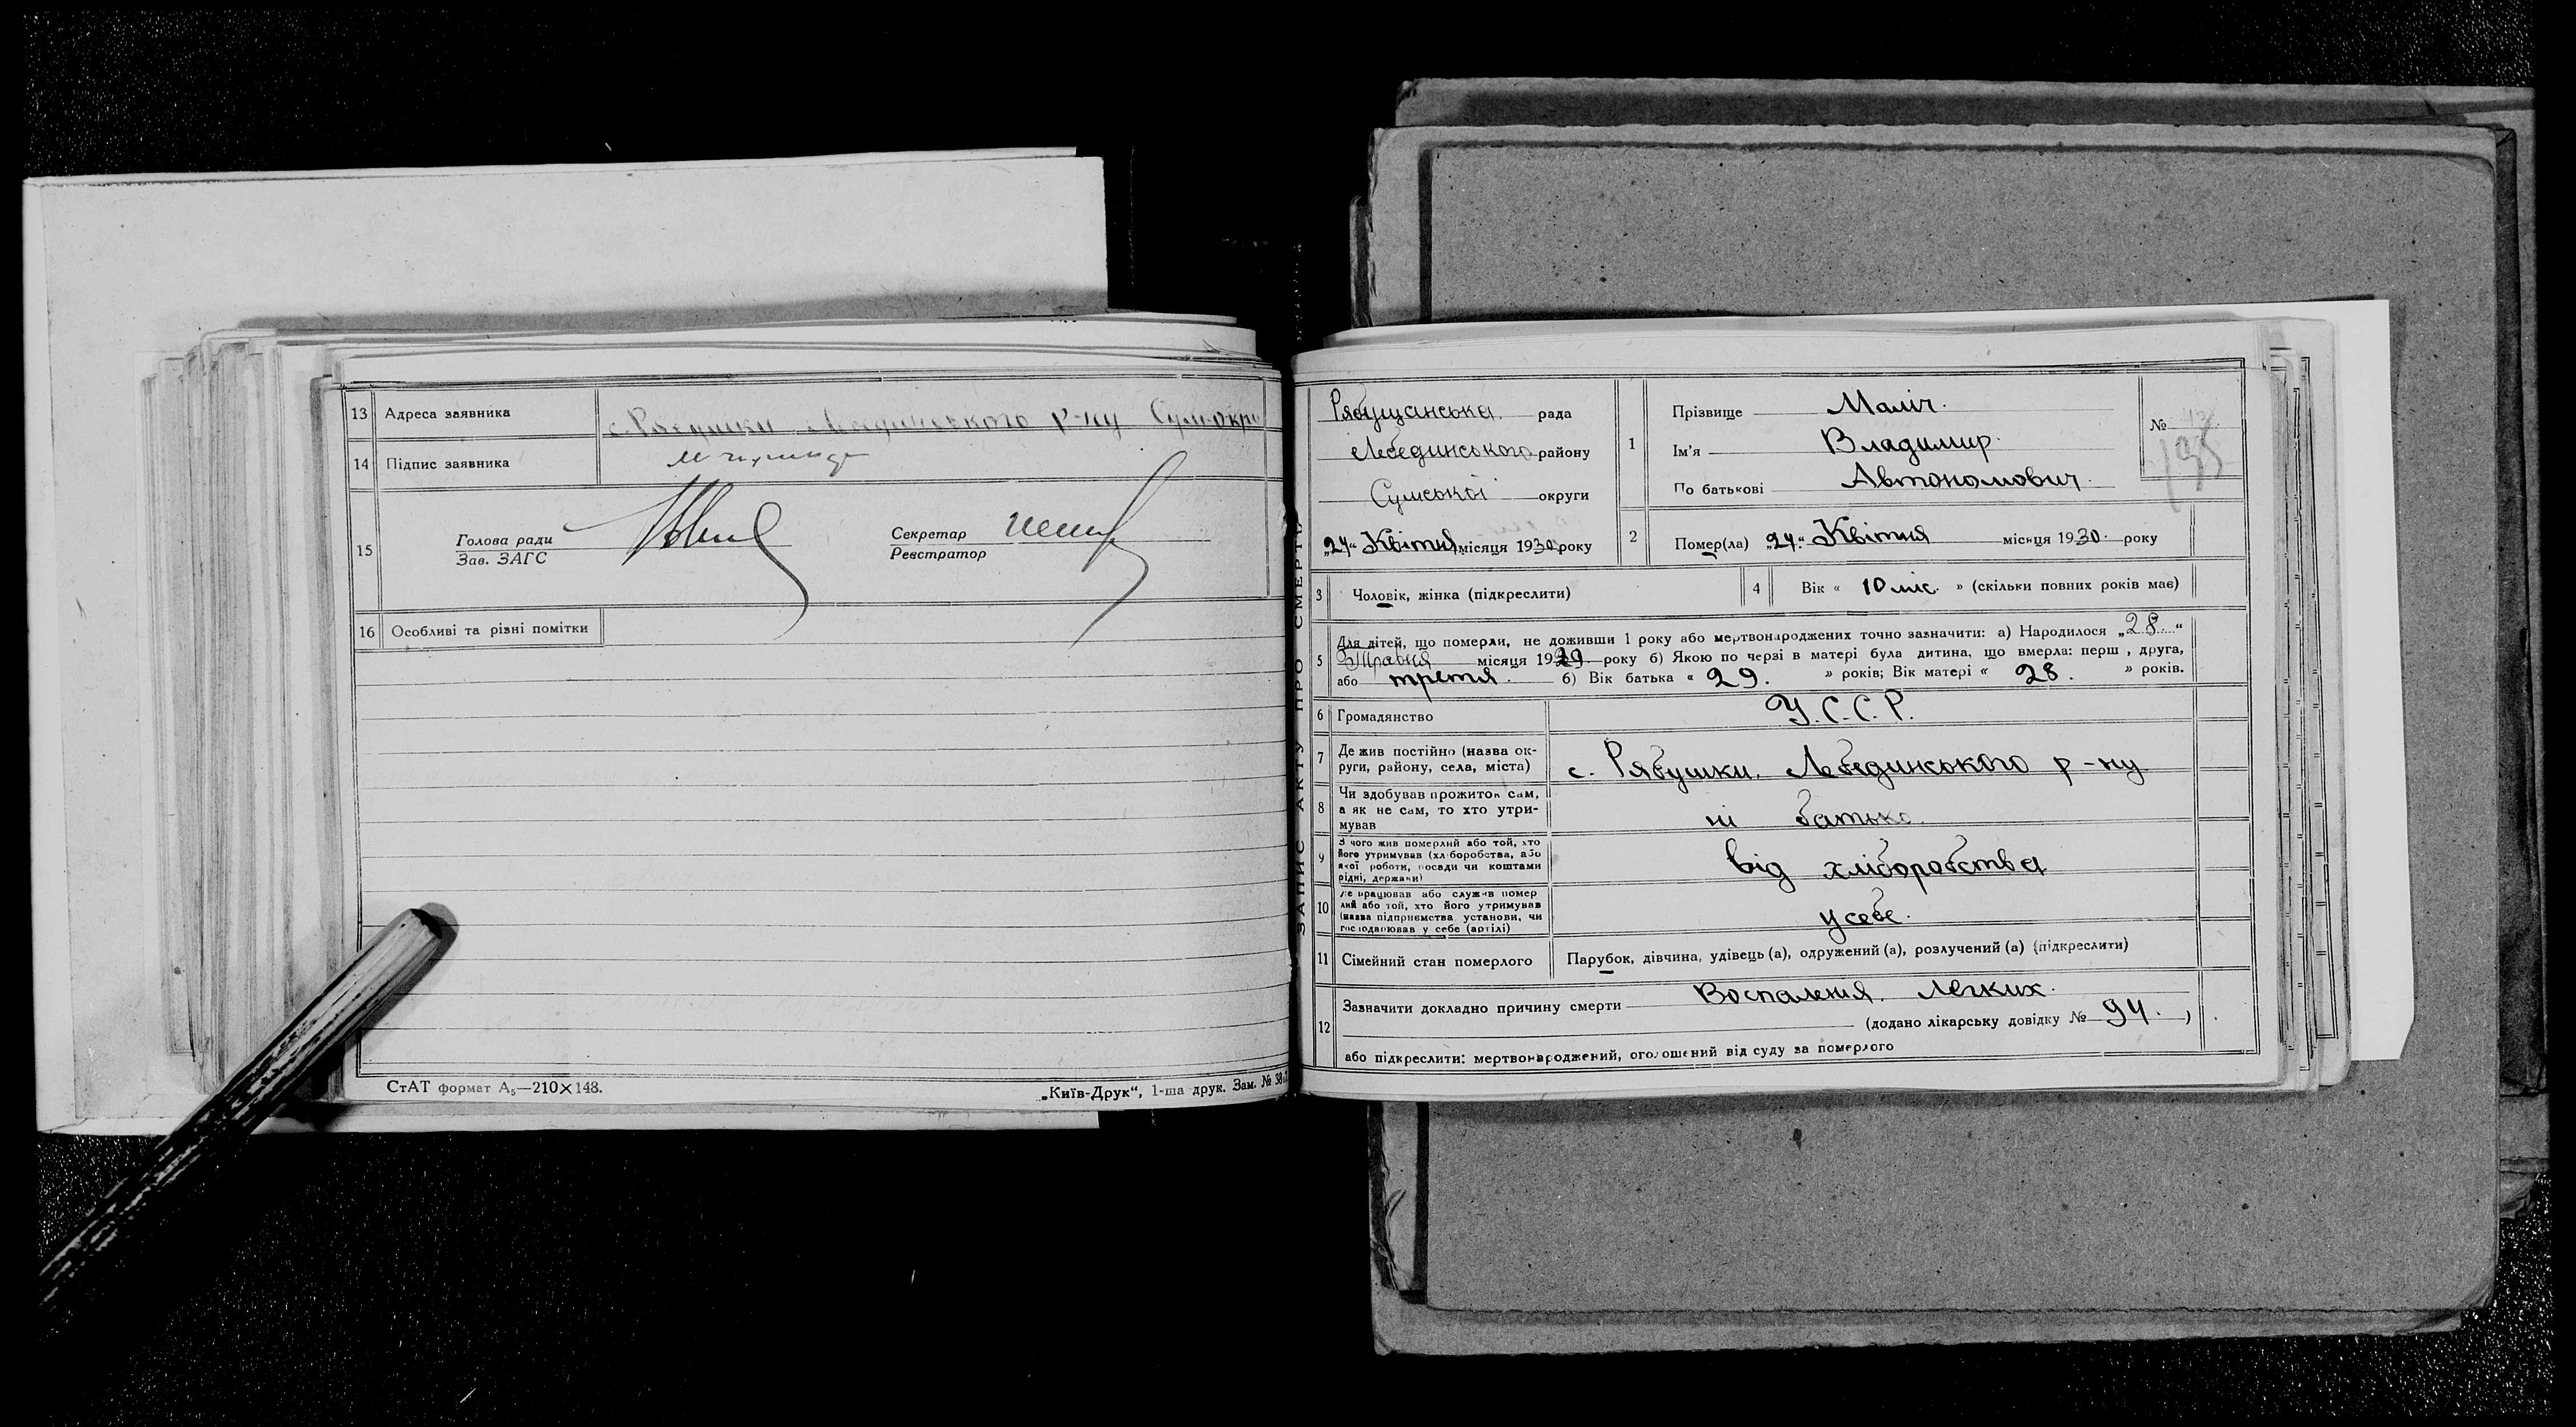 13 Адреса заявника с. Рябушки Лебединського р-ну Сум. окр
14 Підпис заявника
15 Голова ради
Зав. ЗАГС
Секретар
Реєстратор
16 Особливі та різні помітки
СтАТ формат А5—210×148.
„Київ-Друк“, 1-ша друк. Зам. № 38
ЗАПИС АКТУ ПРО СМЕРТЬ
Рябущанська рада
Лебединського району
Сумської округи
„24“ Квітня місяця 1930 року
1 Прізвище Маліч.
Ім'я Владимир.
По батькові Автономович.
№
195
2 Помер(ла) „24.“ Квітня місяця 1930. року
3 Чоловік, жінка (підкреслити)
4 Вік « 10 міс. » (скільки повних років має)
5 Для дітей, що померли, не доживши 1 року або мертвонароджених точно зазначити: а) Народилося „28.“
Травня місяця 1929. року б) Якою по черзі в матері була дитина, що вмерла: перш , друга,
або третя. б) Вік батька « 29. » років; Вік матері « 28. » років.
6 Громадянство У.С.С.Р.
7 Де жив постійно (назва ок-
руги, району, села, міста) с. Рябушки. Лебединського р-ну
8 Чи здобував прожиток сам,
а як не сам, то хто утри-
мував ні батько.
9 З чого жив померлий або той, хто
його утримував (хліборобства, або
якої роботи, посади чи коштами
рідні, держави) від хліборобства
10 Де працював або служив помер
лий або той, хто його утримував
(назва підприємства установи, чи
господарював у себе (артілі) у себе.
11 Сімейний стан померлого Парубок, дівчина, удівець (а), одружений (а), розлучений (а) (підкреслити)
12 Зазначити докладно причину смерти Воспаления. Легких.
(додано лікарську довідку № 94. )
або підкреслити: мертвонароджений, оголошений від суду за померлого